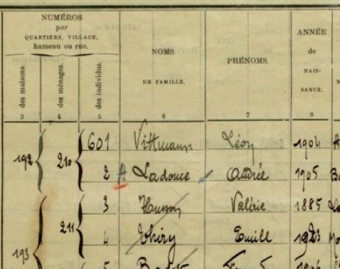 NUMÉROS
par
QUARTIERS, VILLAGE,
hameau ou rue.
des maisons.
des ménages.
des individus.
NOMS
DE FAMILLE.
PRÉNOMS.
ANNÉE
de
NAIS-
SANCE.
3 4 5 6 7 8
192 210 601 Vittmann Léon 1904
2 Ladouce Andrée 1905
211 3 Husson Valérie 1885
193 4 Thiry Emile
5